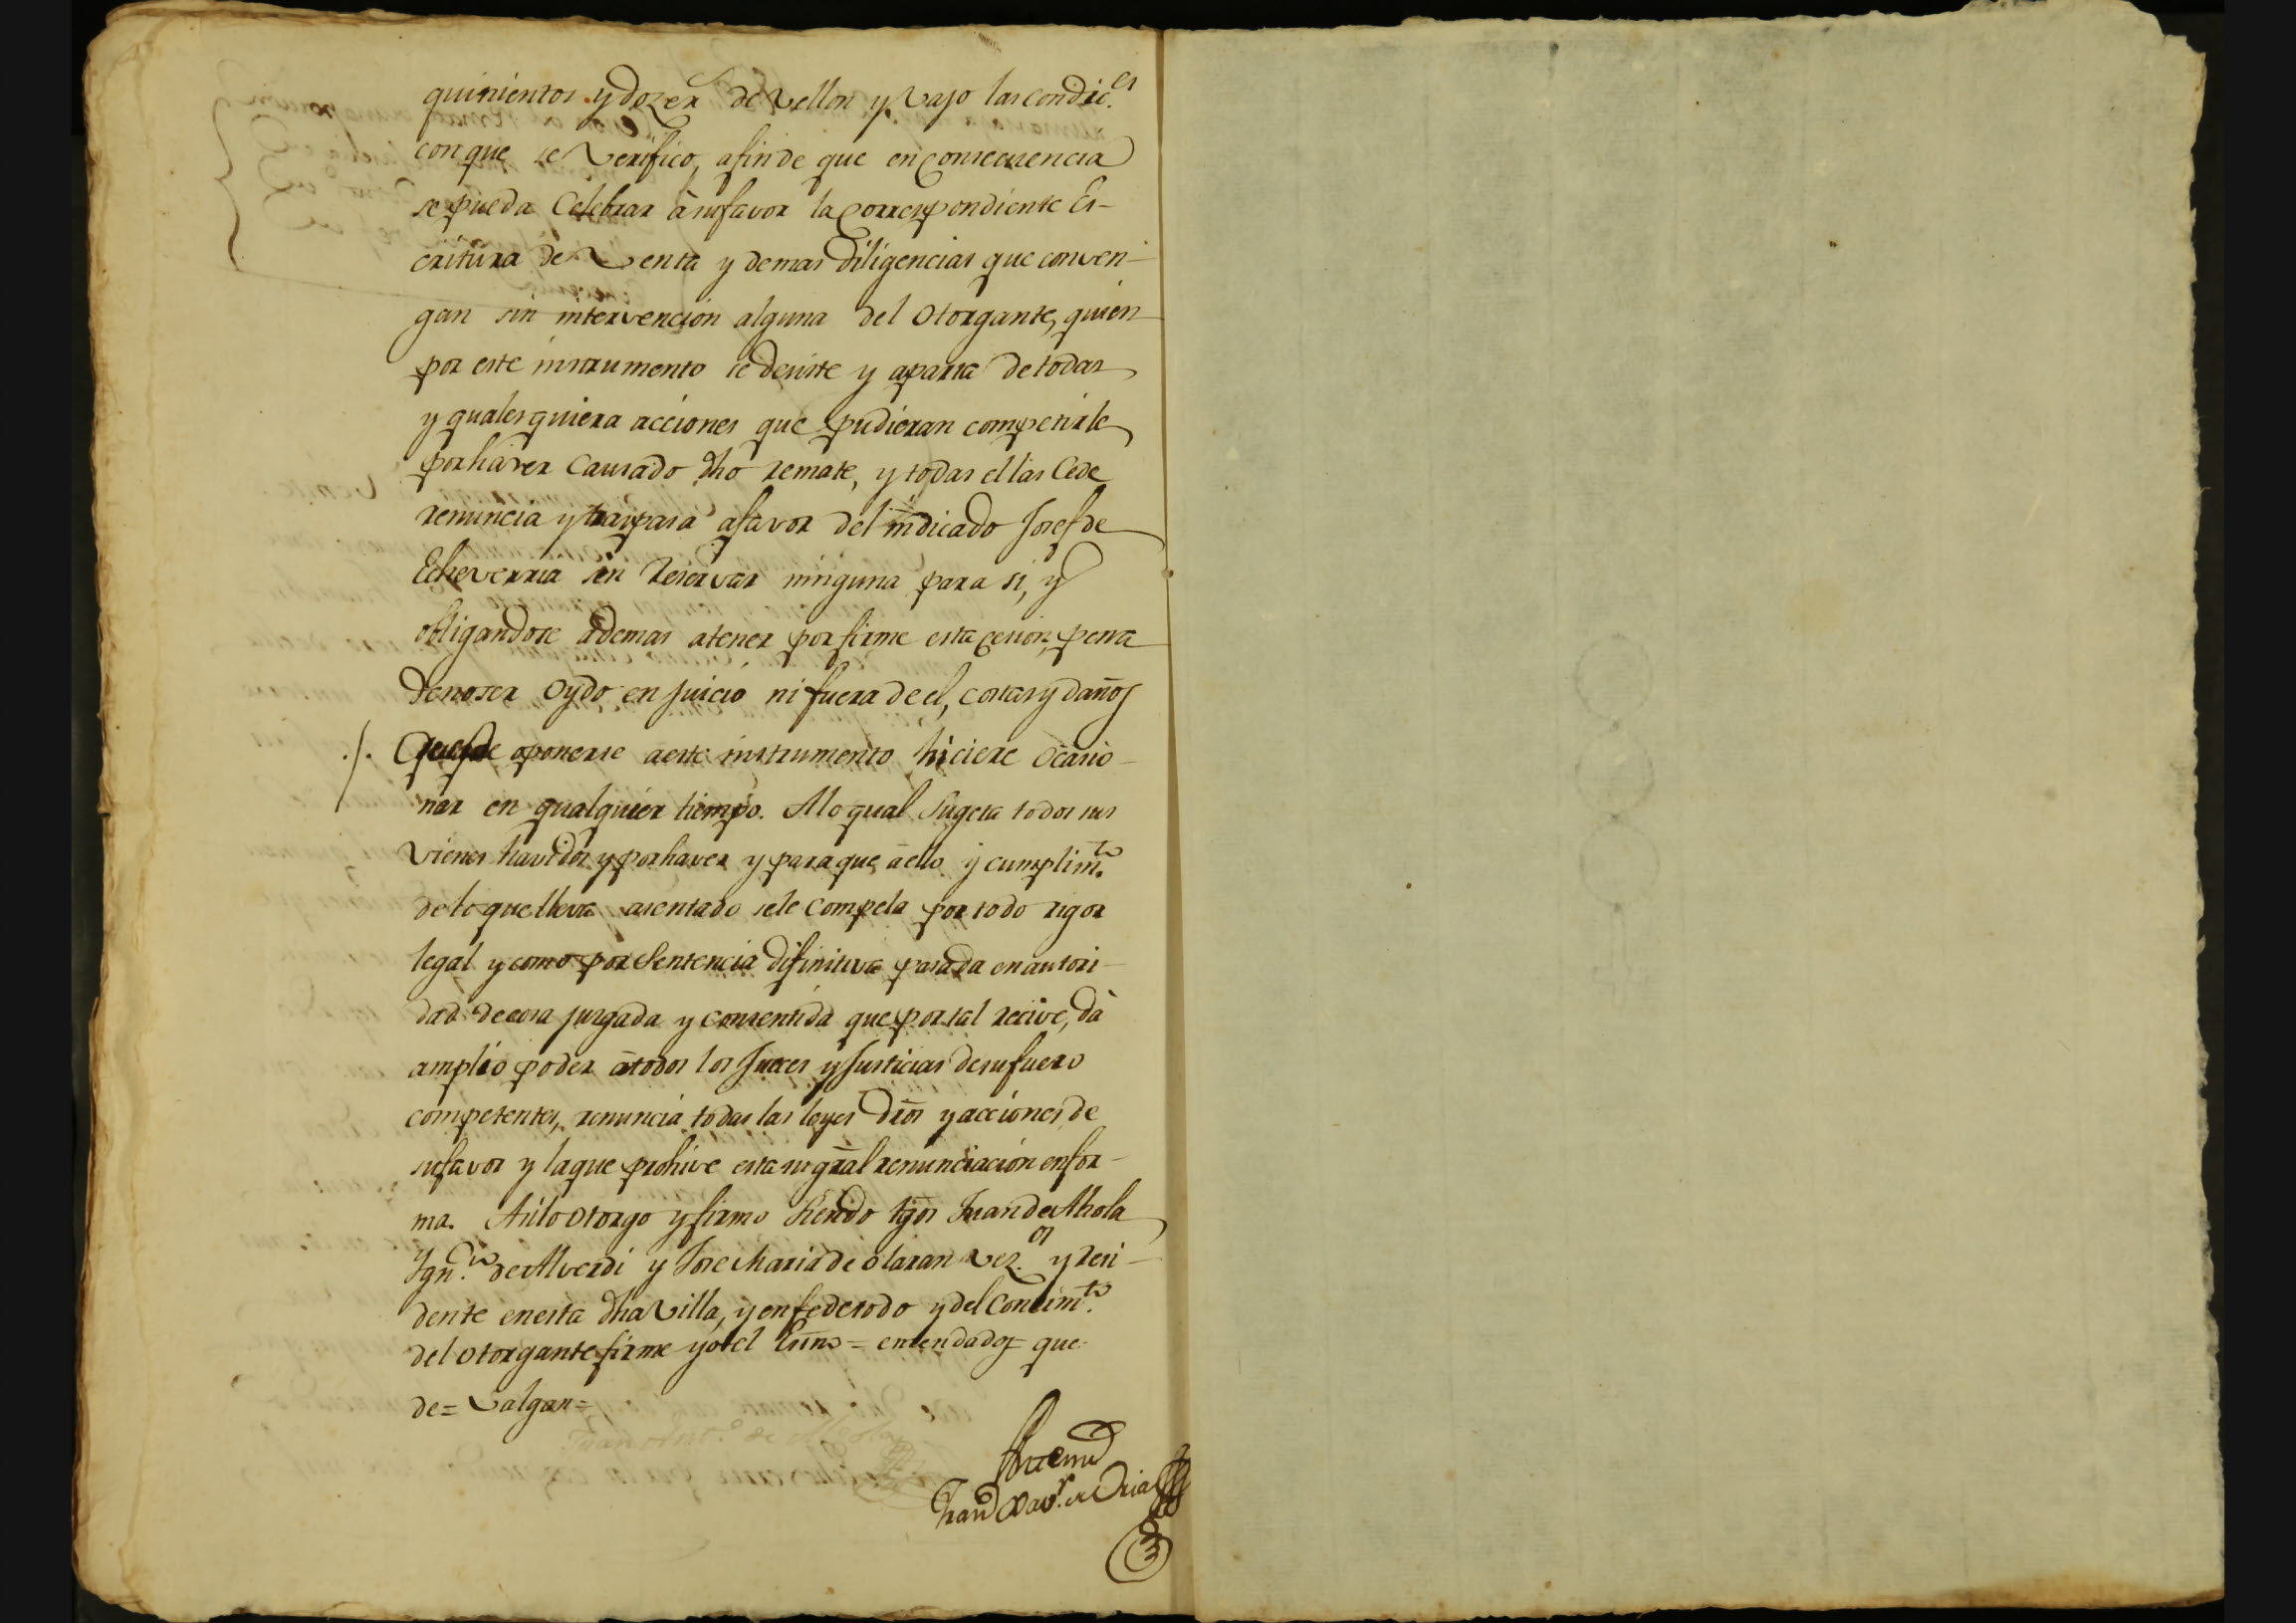 quinientos y doze r.s de Vellon y Vajo las condic.es
con que se Verifico, afin de que en Consecuencia
se pueda Celebrar à su favor la Correspondiente Es-
critura de Venta y demas diligencias que conven-
gan sin intervencion alguna del Otorgante, quien
por este instrumento se desiste y aparta de todas
y qualesquiera acciones que pudieran competirle
por haver Causado dho remate, y todas ellas Cede
renuncia y traspasa afavor del indicado Josef de
Echeverria sin Reservar ninguna para si, y
obligandose ademas atener por firme esta Cesion, pena
de no ser Oydo en Juicio ni fuera de el, costas y daños
./. Que de oponerse a este instrumento hiciere Ocasio-
nar en qualquier tiempo. Alo qual Sugeta todos sus
Vienes havidos y por haver y para que à ello y cumplim.to
de lo que lleva asentado se le Compela por todo rigor
legal y como por Sentencia difinitiva pasada en autori-
dad de cosa juzgada y consentida que por tal recive, dà
amplio poder à todos los Jueces y Justicias de su fuero
competentes, renuncia todas las leyes drõs y acciones de
su favor y la que prohive esta su grãl renunciacion en for-
ma. Asi lo Otorgo y firmo siendo tg̃os Juan de Alzola
Ygn.cio de Alverdi y Jose Maria de Olaran Vez.os y Resi-
dente en esta dha Villa, y en fe de todo y del Conocim.to
del Otorgante firme yo el Ess̃no = enmendados = que
de = Valgan =
Juan Ant.o de
Ante mi
Fran.co Xav.r de